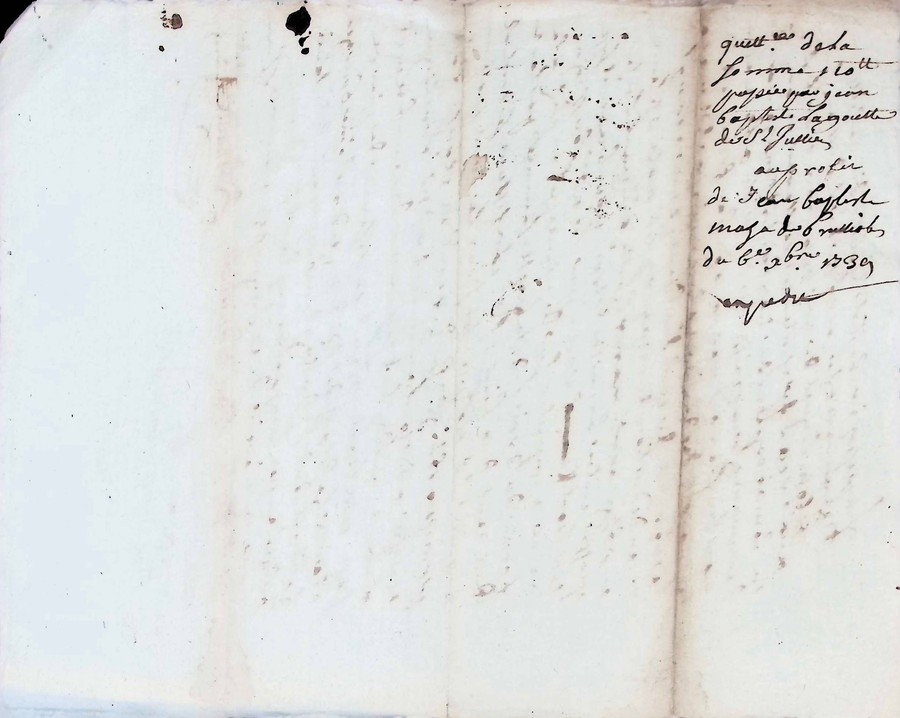 quitt.ce de la
somme 110tt
payée par jean
baptiste Lagoutte
de St Jullien
au profit
de Jean baptiste
maza de
du 6.e xbre 1739